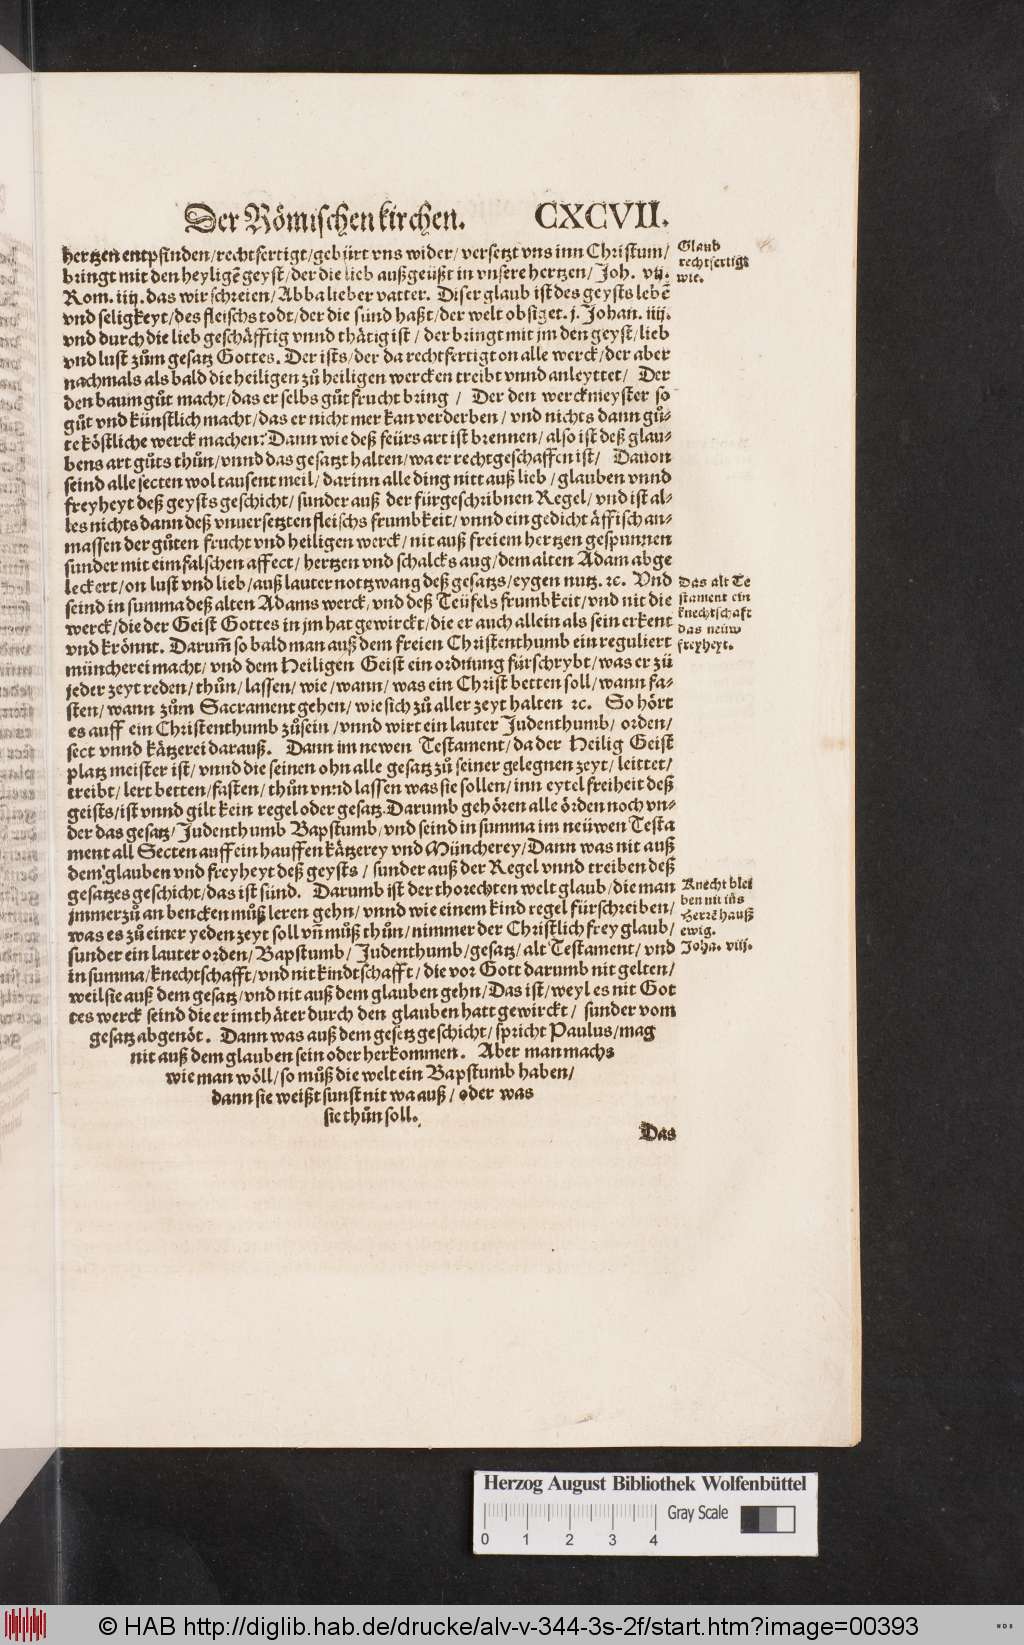 Der Römischen kirchen. CXCVII.
hertzen entpfinden/rechtfertigt/gebürt vns wider/ versetzt vns inn Christum/
bringt mit den heyligẽ geyst/der die lieb außgeüßt in vnsere hertzen/ Joh. vij.
Rom. iiij. das wir schreien/Abba lieber vatter. Diser glaub ist des geysts lebẽ
vnd seligkeyt/des fleischs todt/der die sünd haßt/der welt obsiget. j. Johan. iiij.
vnd durch die lieb geschäfftig vnnd thätig ist/ der bringt mit jm den geyst/lieb
vnd lust zům gesatz Gottes. Der ists/der da rechtfertigt on alle werck/der aber
nachmals als bald die heiligen zů heiligen wercken treibt vnnd anleyttet/ Der
den baum gůt macht/das er selbs gůt frucht bring / Der den werckmeyster so
gůt vnd künstlich macht/das er nicht mer kan verderben/ vnd nichts dann gů-
te köstliche werck machen: Dann wie deß feürs art ist brennen/also ist deß glau-
bens art gůts thůn/vnnd das gesatzt halten/wa er rechtgeschaffen ist/ Dauon
seind alle secten wol tausent meil/darinn alle ding nitt auß lieb/glauben vnnd
freyheyt deß geysts geschicht/sunder auß der fürgeschribnen Regel/vnd ist al-
les nichts dann deß vnuersetzten fleischs frumbkeit/vnnd ein gedicht äffisch an-
massen der gůten frucht vnd heiligen werck/nit auß freiem hertzen gespunnen
sunder mit eim falschen affect/hertzen vnd schalcks aug/dem alten Adam abge
leckert/on lust vnd lieb/auß lauter nottzwang deß gesatzs/eygen nutz. ꝛc. Vnd
seind in summa deß alten Adams werck/vnd deß Teüfels frumbkeit/vnd nit die
werck/die der Geist Gottes in jm hat gewirckt/die er auch allein als sein erkent
vnd krönnt. Darum̃ so bald man auß dem freien Christenthumb ein reguliert
müncherei macht/vnd dem Heiligen Geist ein ordnung fürschrybt/was er zů
jeder zeyt reden/thůn/lassen/wie/wann/was ein Christ betten soll/wann fa-
sten/wann zům Sacrament gehen/wie sich zů aller zeyt halten ꝛc. So hört
es auff ein Christenthumb zůsein/vnnd wirt ein lauter Judenthumb/ orden/
sect vnnd kätzerei darauß. Dann im newen Testament/da der Heilig Geist
platz meister ist/vnnd die seinen ohn alle gesatz zů seiner gelegnen zeyt/leittet/
treibt/lert betten/fasten/thůn vnnd lassen was sie sollen/inn eytel freiheit deß
geists/ist vnnd gilt kein regel oder gesatz. Darumb gehören alle örden noch vn-
der das gesatz/Judenthumb Bapstumb/vnd seind in summa im neüwen Testa
ment all Secten auff ein hauffen kätzerey vnd Müncherey/Dann was nit auß
dem glauben vnd freyheyt deß geysts / sunder auß der Regel vnnd treiben deß
gesatzes geschicht/das ist sünd. Darumb ist der thorechten welt glaub/die man
jmmerzů an bencken můß leren gehn/vnnd wie einem kind regel fürschreiben/
was es zů einer yeden zeyt soll vñ můß thůn/nimmer der Christlich frey glaub/
sunder ein lauter orden/Bapstumb/ Judenthumb/gesatz/alt Testament/vnd
in summa/knechtschafft/vnd nit kindtschafft/die vor Gott darumb nit gelten/
weil sie auß dem gesatz/vnd nit auß dem glauben gehn/Das ist/weyl es nit Got
tes werck seind die er im thäter durch den glauben hatt gewirckt/ sunder vom
gesatz abgenöt. Dann was auß dem gesetz geschicht/spricht Paulus/mag
nit auß dem glauben sein oder herkommen. Aber man machs
wie man wöll/so můß die welt ein Bapstumb haben/
dann sie weißt sunst nit wa auß/oder was
sie thůn soll.
Das
Glaub
rechtfertigt
wie.
Das alt Te
stament ein
knechtschaft
das neüw
freyheyt.
Knecht blei
ben nit iñs
Herrẽ hauß
ewig.
Joha. viij.
Herzog August Bibliothek Wolfenbüttel
0 1 2 3 4 Gray Scale
© HAB http://diglib.hab.de/drucke/alv-v-344-3s-2f/start.htm?image=00393